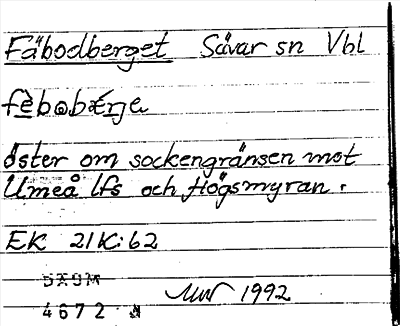 Fäbodberget Sävar sn Vbl
öster om sockengränsen mot
Umeå lfs och Högsmyran.
EK 21K:62
DAUM
4672
1992